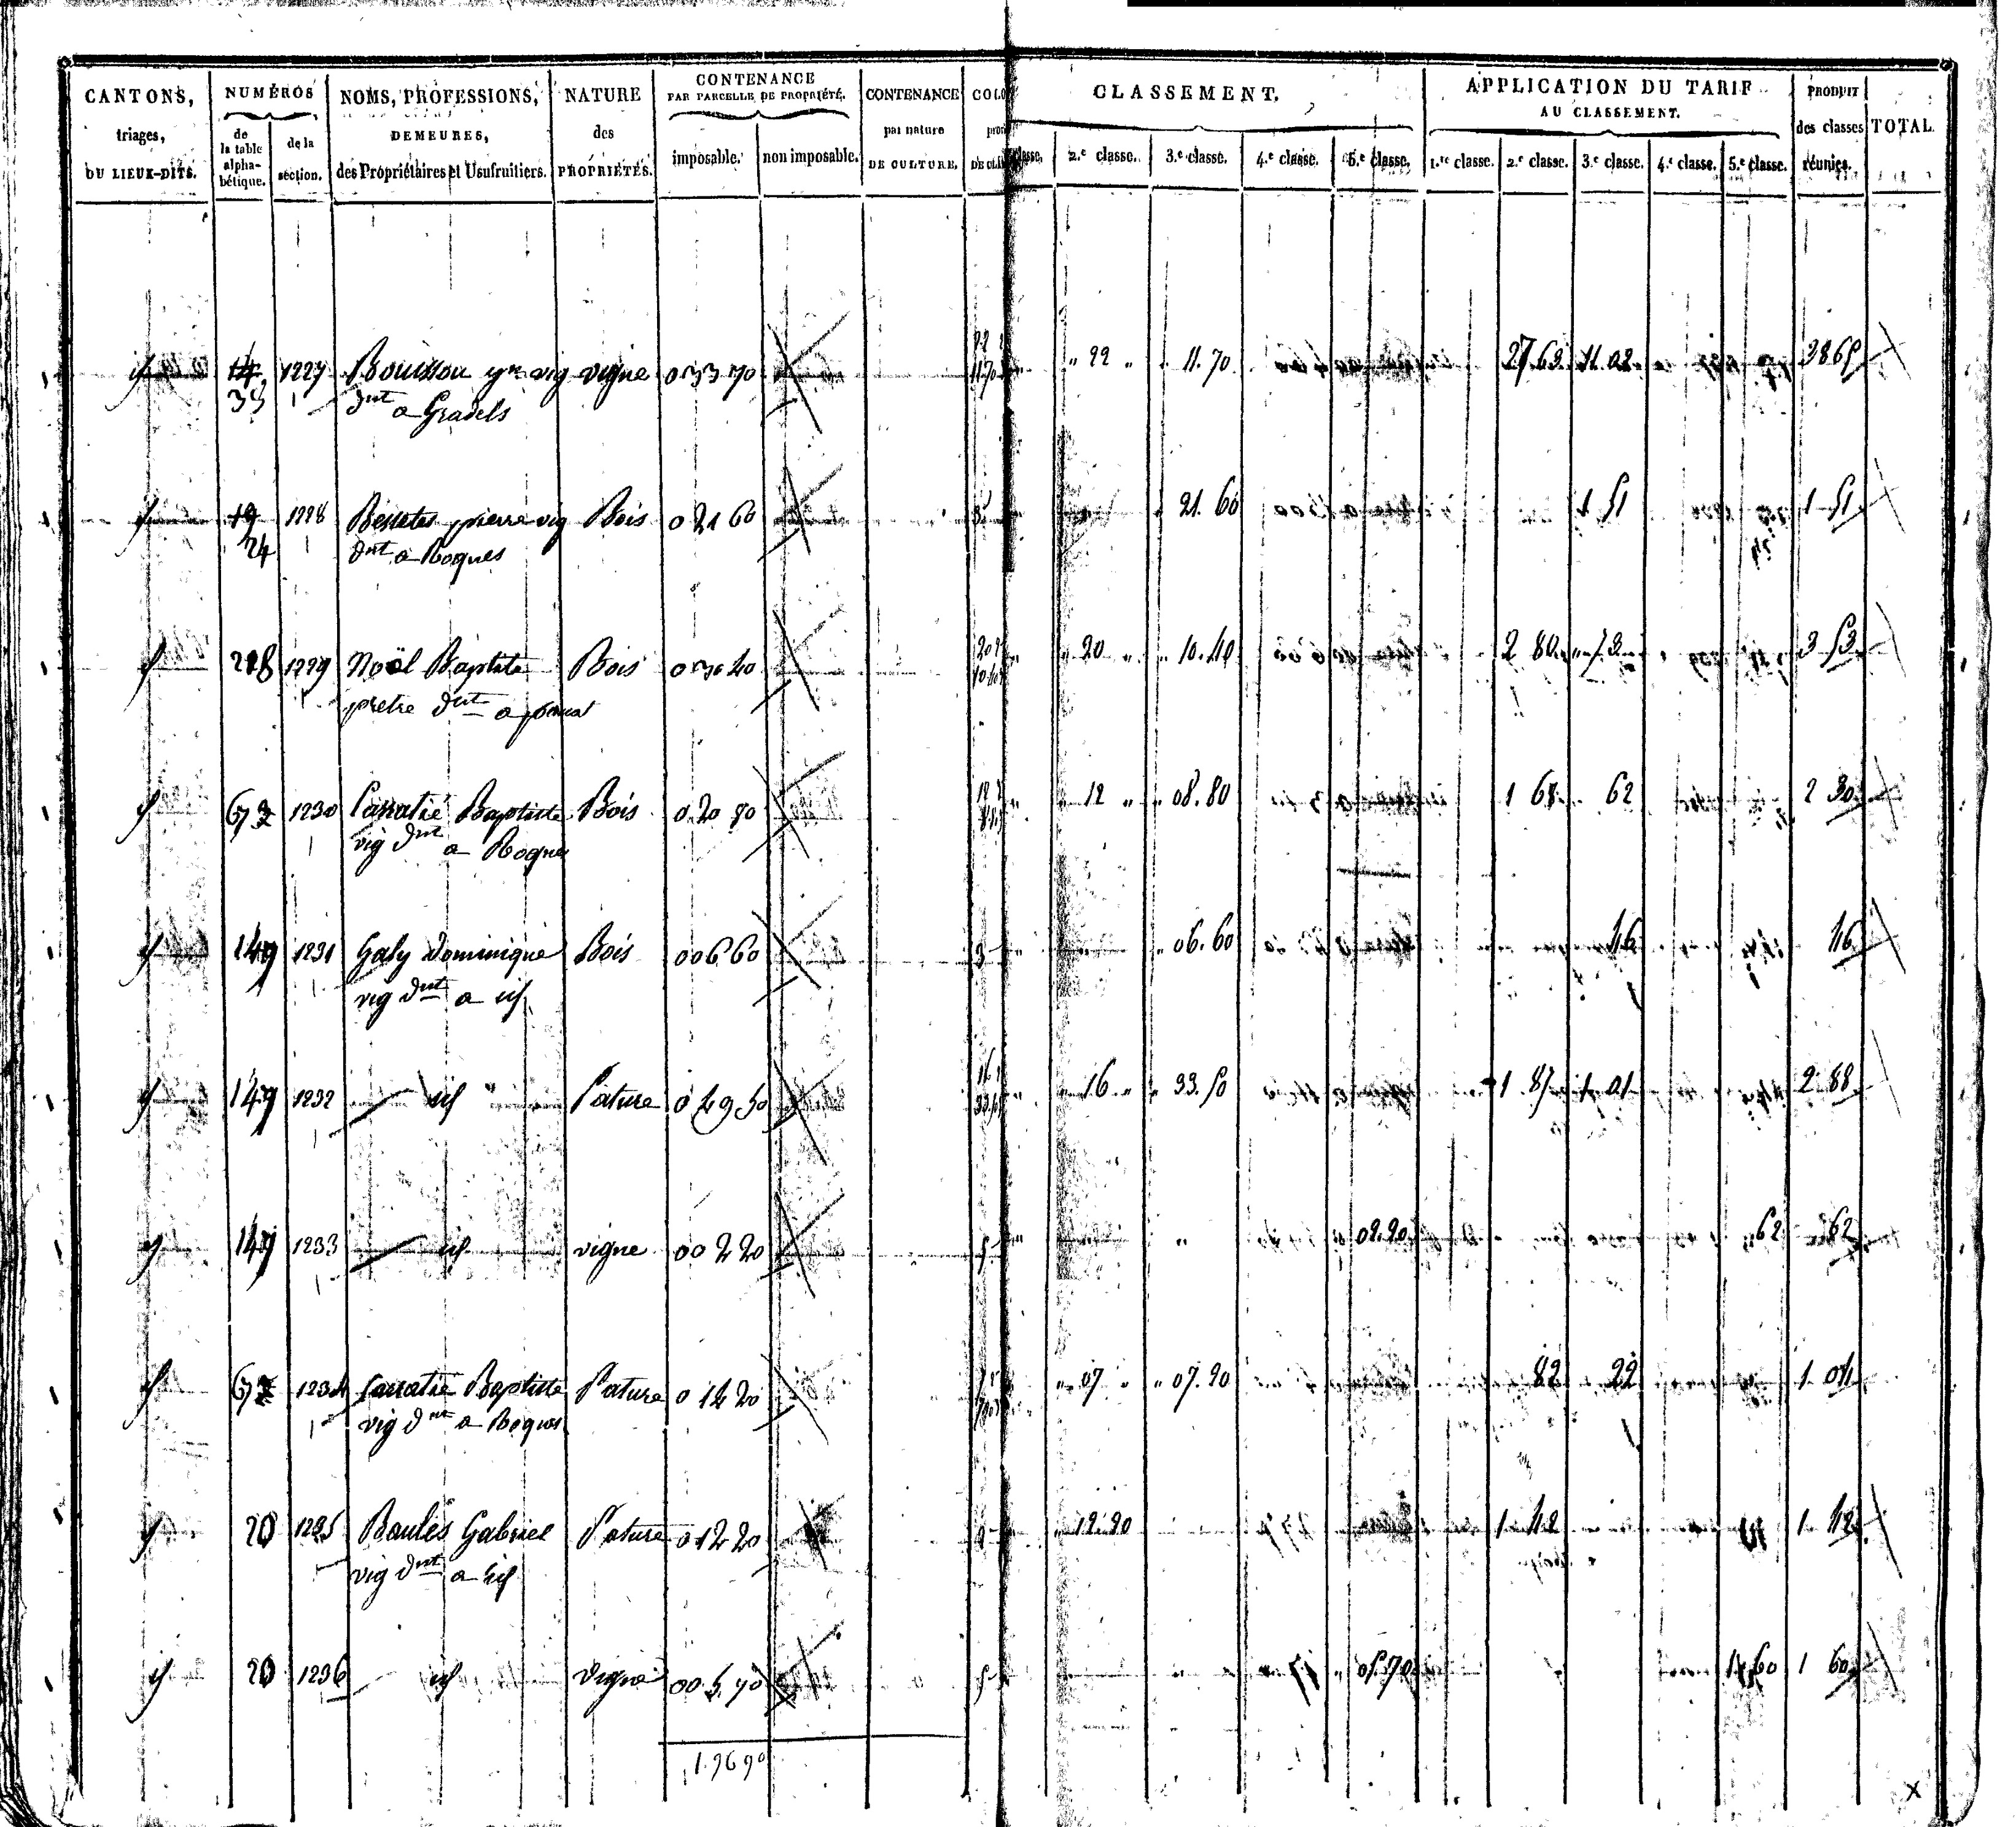 CANTONS, triages, OU LIEUX-DITS.
NUMÉROS de la table alphabétique. de la section.
NOMS, PROFESSIONS, DEMEURES, des Propriétaires et Usufruitiers.
NATURE des PROPRIÉTÉS.
CONTENANCE PAR PARCELLE DE PROPRIÉTÉ. imposable. non imposable.
CONTENANCE par nature DE CULTURE.
CLASSEMENT. 2.e classe. 3.e classe. 4.e classe. 5.e classe.
APPLICATION DU TARIF AU CLASSEMENT. 1.re classe. 2.e classe. 3.e classe. 4.e classe. 5.e classe.
PRODUIT des classes réunies.
TOTAL.
14 1227 Bouisson vig vigne 0 33 70 22 11.70 27 63 11 02 38 65
33 dnt a Gradels
19 1228 Bessetes pierre vig Bois 0 21 60 21.60 1 51 1 51
24 dnt a Roques
218 1229 Noël Baptiste Bois 0 30 40 20 10.40 2 80 73 3 53
pretre dnt a
67 1230 Baptiste Bois 0 20 80 12 08.80 1 68 62 2 30
vig dnt a Roques
149 1231 Galy Dominique Bois 0 06 60 06.60 46 46
vig dnt a
149 1232 Pature 0 49 50 16 33.50 1 87 1 01 2 88
149 1233 vigne 00 2 20 02.20 62 62
67 1234 Baptiste Pature 0 14 20 07 07.20 82 22 1 04
vig dnt a Roques
20 1235 Boulés Gabriel Pature 0 12 20 12.20 1 42 1 42
vig dnt a
20 1236 vigne 00 5 70 05.70 1 60 1 60
1.96 90
X